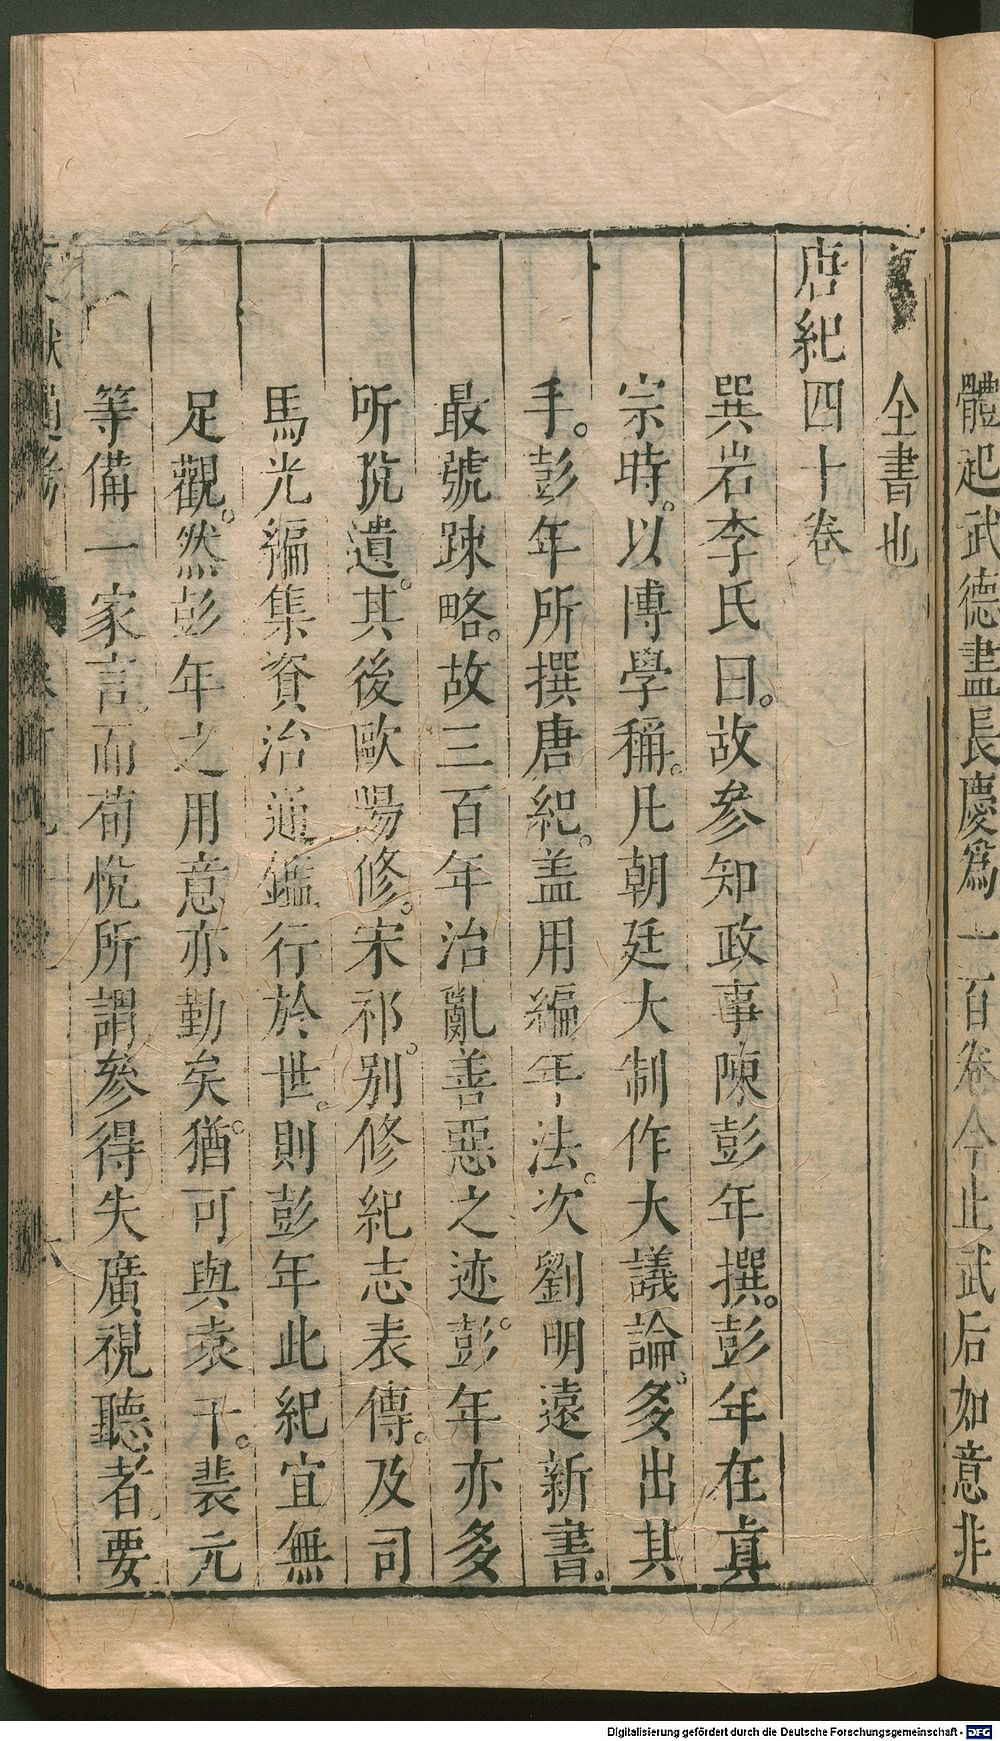 體起武德盡長慶爲一百卷今止武后如意非
全書也
唐紀四十卷
巽岩李氏曰。故参知政事陳彭年撰。彭年在真
宗時。以博學稱。凡朝廷大制作大議論。多出其
手。彭年所撰唐紀。盖用編年法。次劉明遠新書。
最號踈略。故三百年治亂善惡之迹。彭年亦多
所脫遺。其後歐陽修。宋祁。别修紀志表傳。及司
馬光編集資治通鑑行於世。則彭年此紀宜無
足觀。然彭年之用意亦勤矣。猶可與袁干。裴元
等備一家言。而荀悅所謂參得失廣視聽者。要
Digitalisierung gefördert durch die Deutsche Forschungsgemeinschaft - DFG